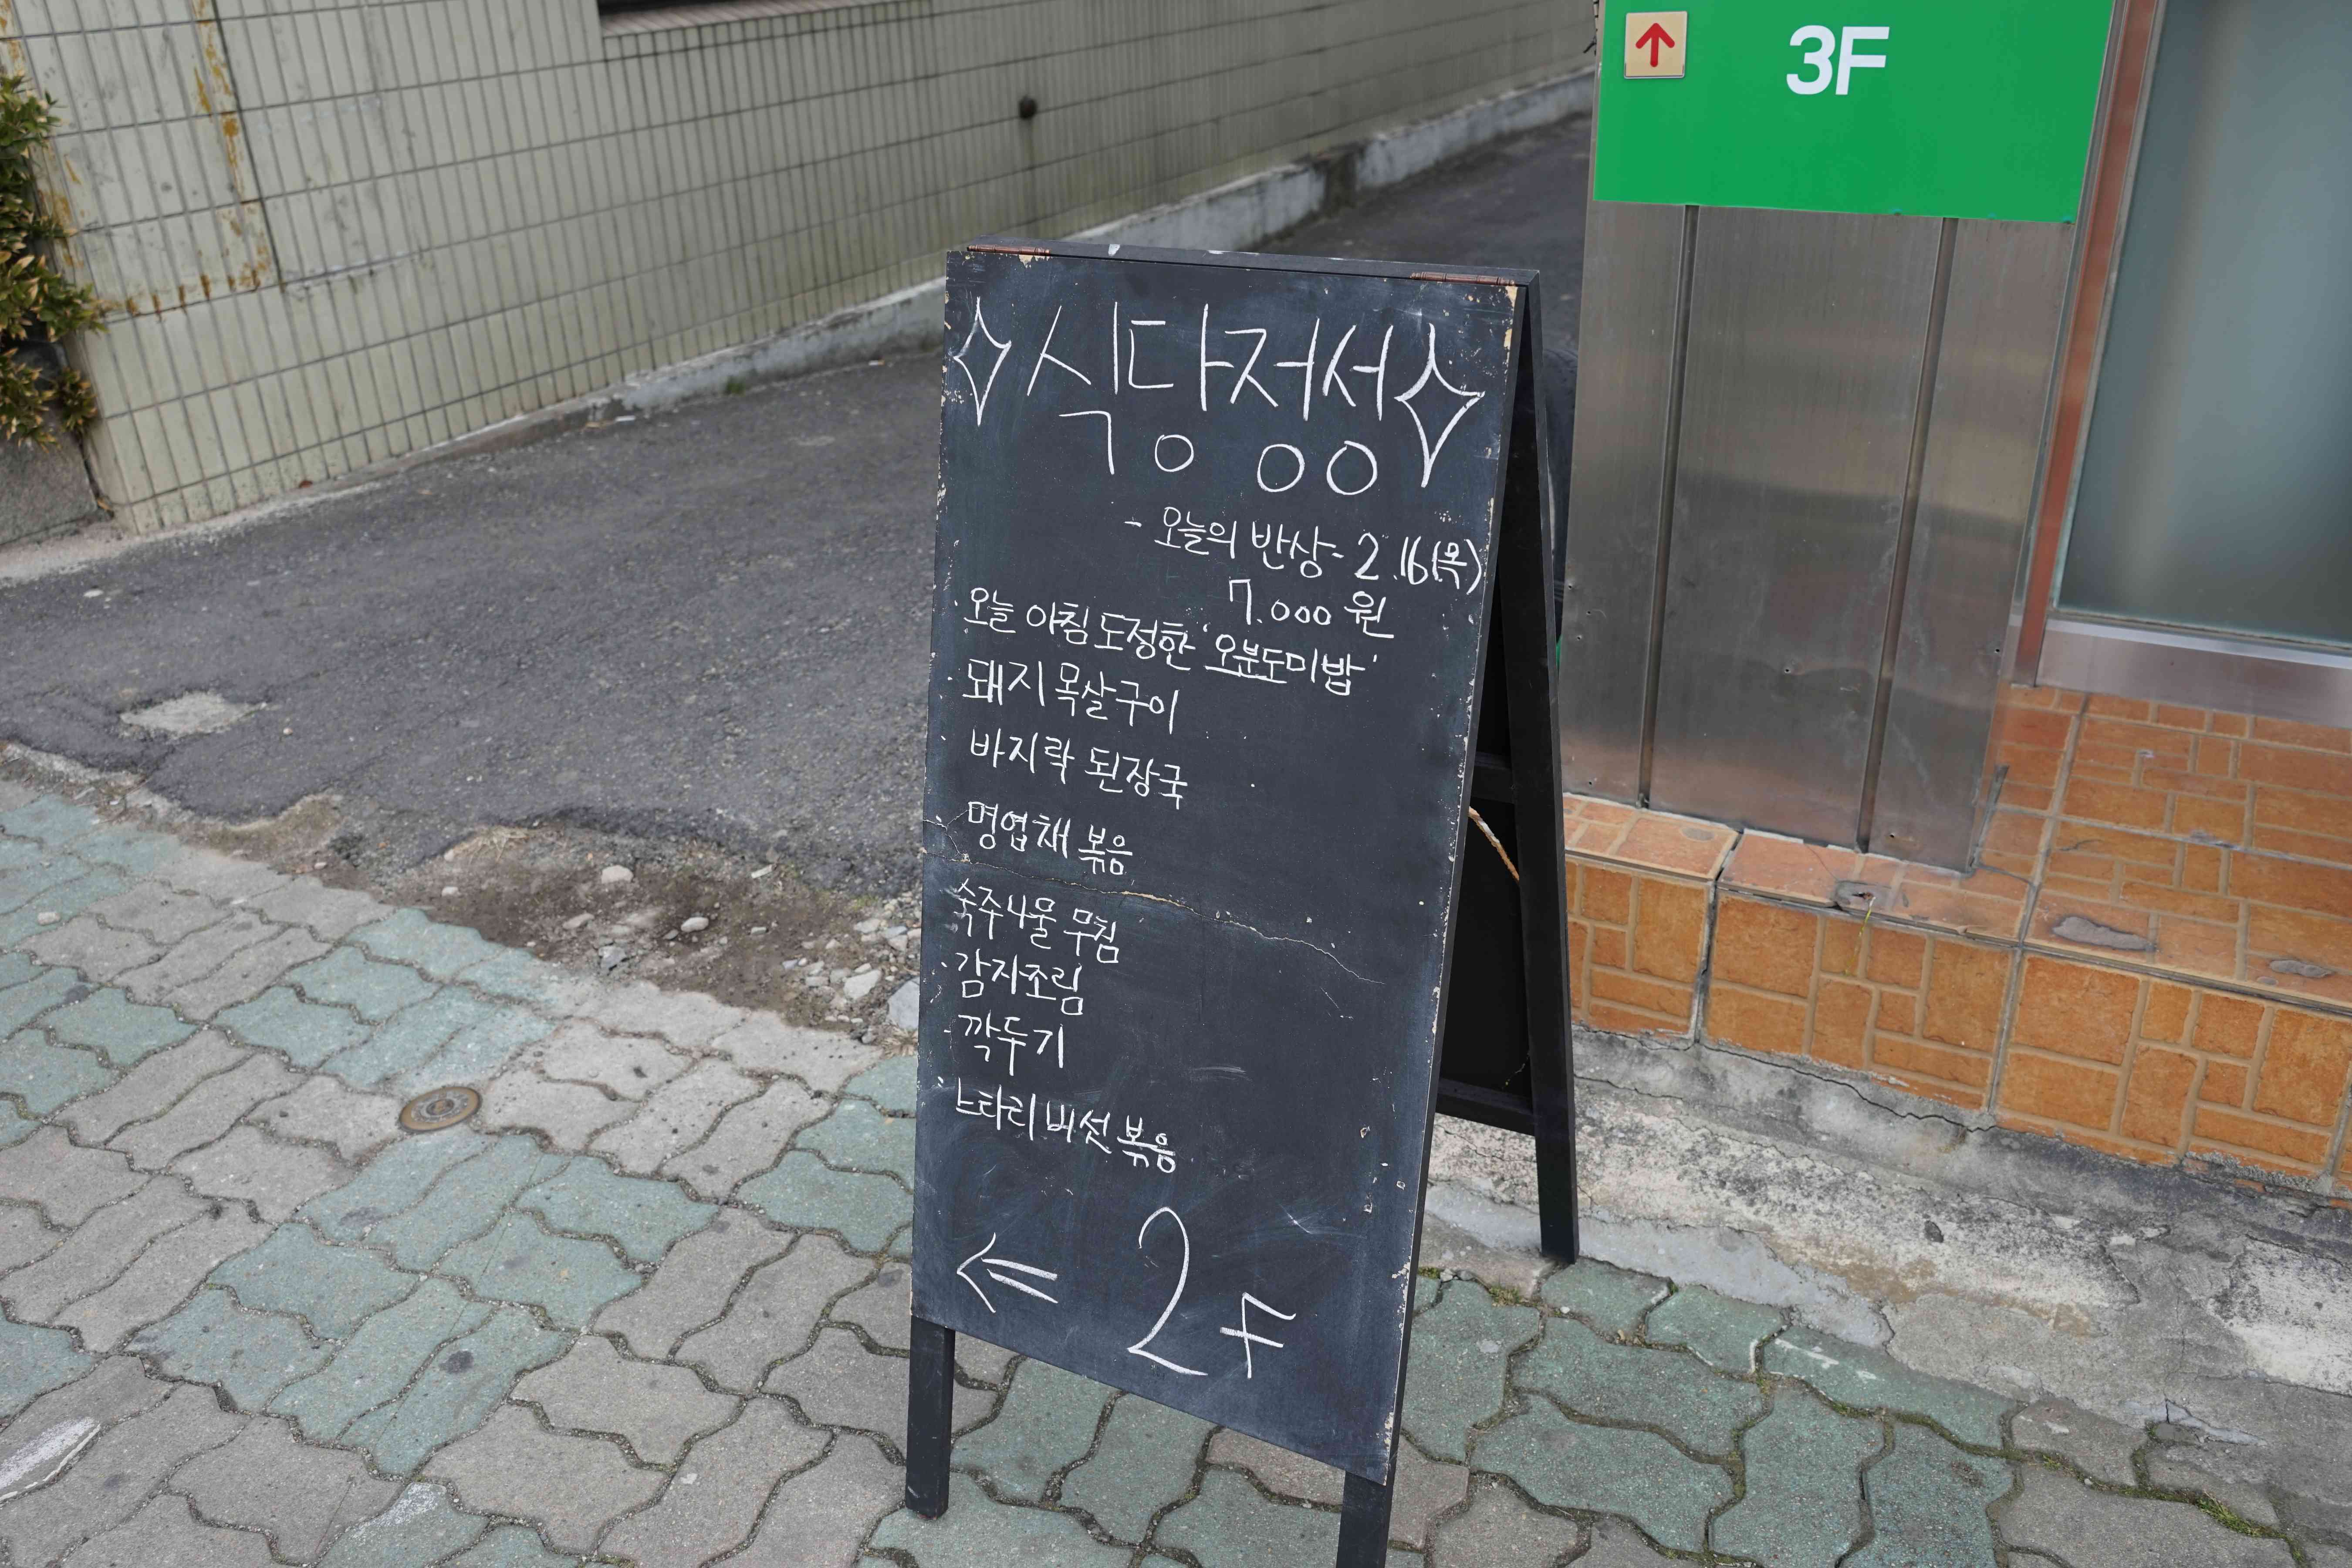 3F
식당정성
- 오늘의 반상- 2.16(목)
7.000 원
· 오늘 아침 도정한 '오분도미밥'
· 돼지 목살구이
· 바지락 된장국
· 명엽채 볶음
숙주나물 무침
· 감자조림
· 깍두기
· 느타리버섯 볶음
← 2F